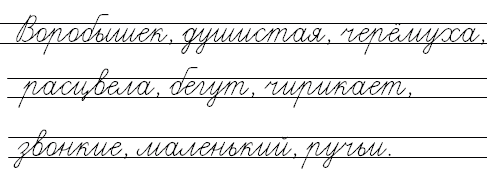 Воробышек, душистая, черёмуха,
расцвела, бегут, чирикает,
звонкие, маленький, ручьи.